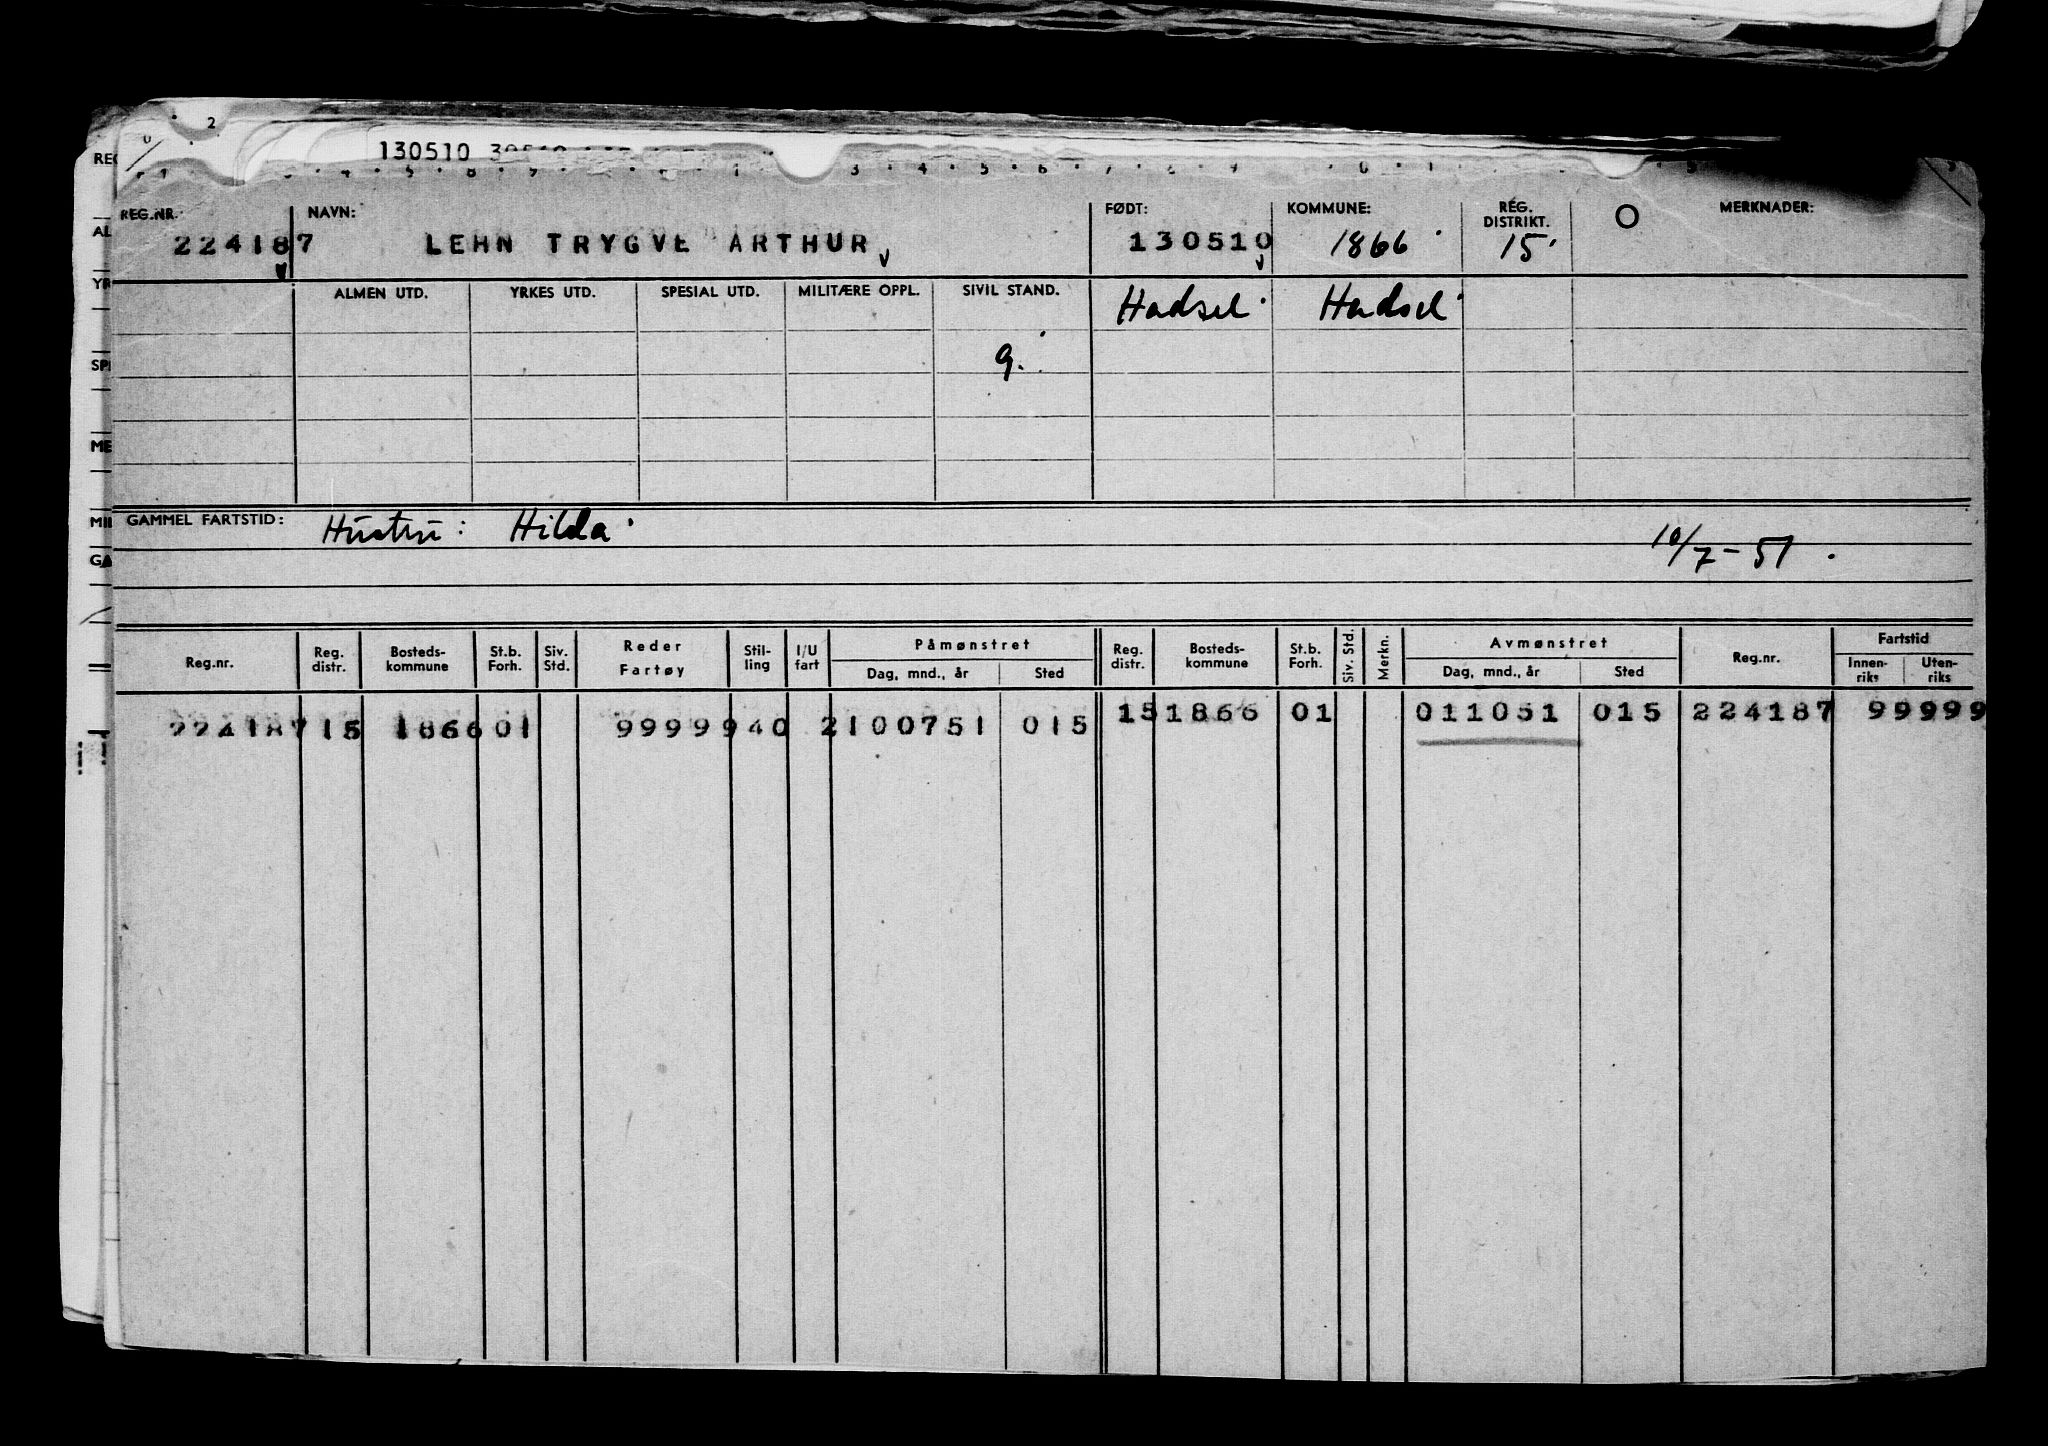 2
0
130510
3 4 5 6 7 8 9
REG.NR. NAVN: FØDT: KOMMUNE: REG. DISTRIKT. MERKNADER:
224187 LEHN TRYGVE ARTHUR 130510 1866 15
ALMEN UTD. YRKES UTD. SPESIAL UTD. MILITÆRE OPPL. SIVIL STAND. Hadsel Hadsel
g.
GAMMEL FARTSTID: Hustru: Hilda
10/7-51.
Reg.nr. Reg. distr. Bosteds-kommune St.b. Forh. Siv. Std. Reder Fartøy Stil-ling I/U fart Påmønstret Reg. distr. Bosteds-kommune St.b. Forh. Siv. Std. Merkn. Avmønstret Reg.nr. Fartstid
Dag, mnd., år Sted Dag, mnd., år Sted Innen-riks Uten-riks
224187 15 1866 01 9999 940 2 100751 015 15 1866 01 011051 015 224187 99999